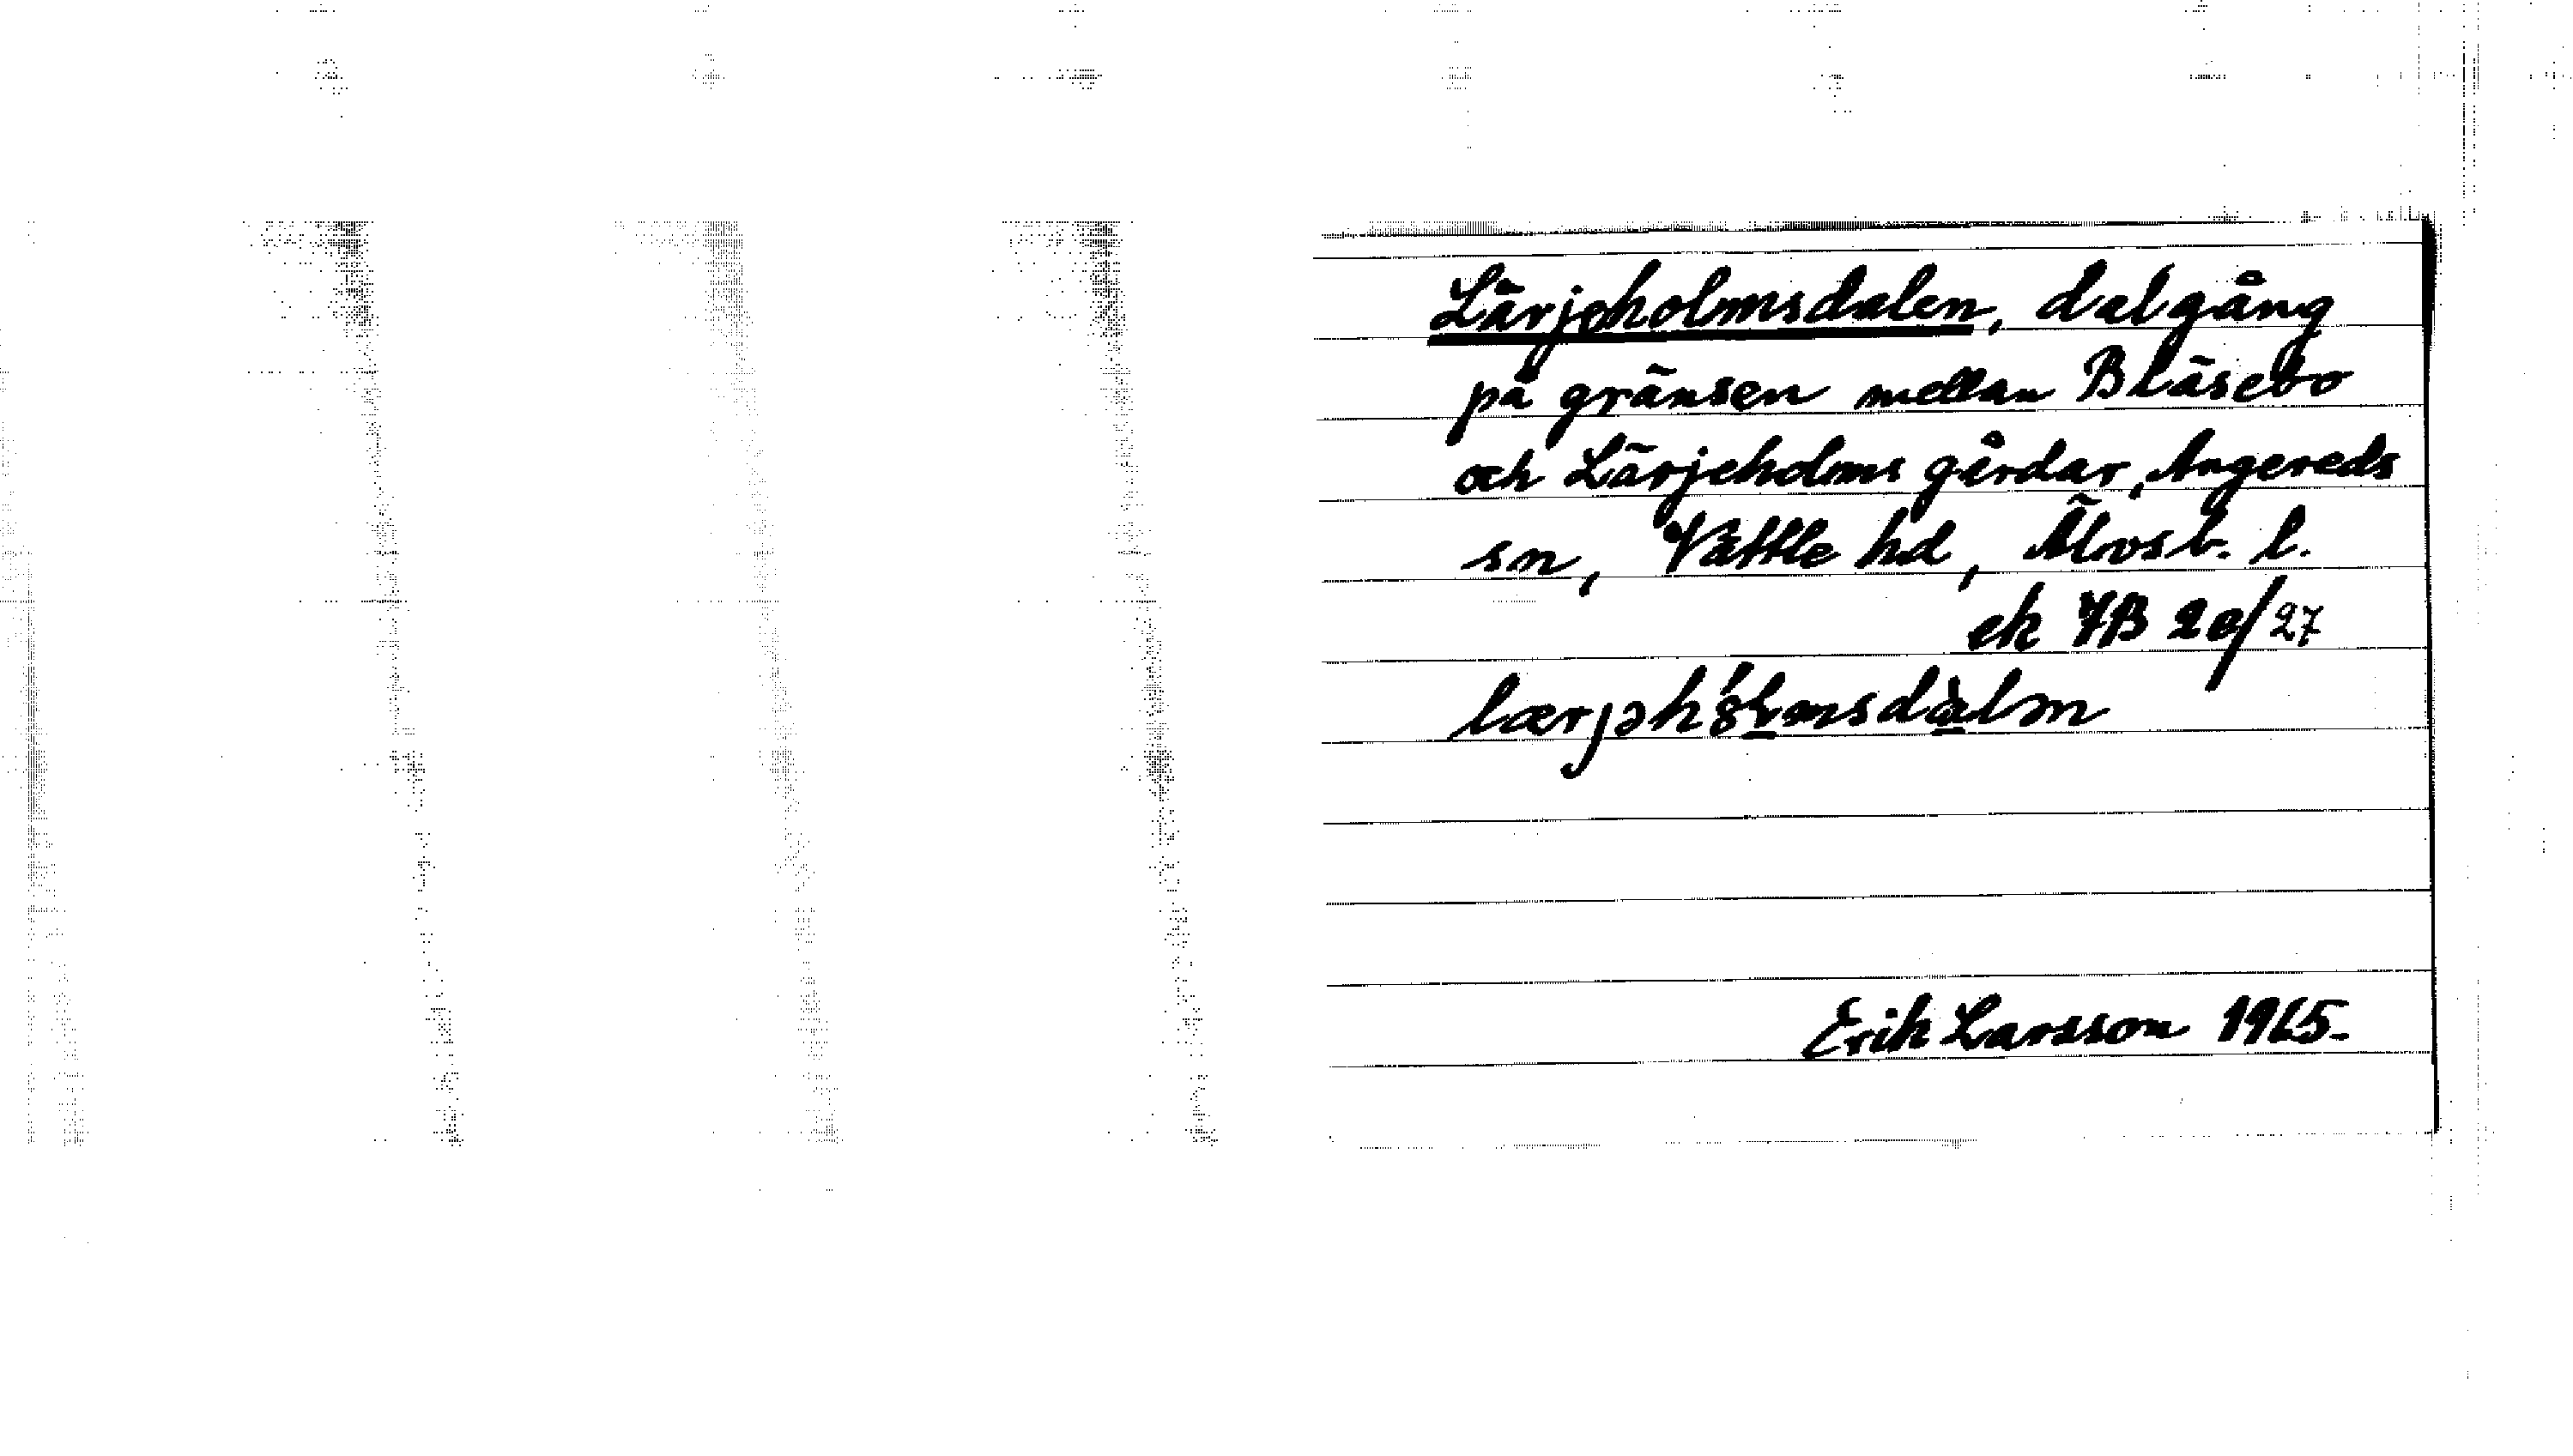 Lärjeholmsdalen, dalgång
på gränsen mellan Bläsebo
och Lärjeholms gårdar, Angereds
sn, Vättle hd, Älvsb. l.
ek 7B 2e/27
Erik Larsson 1965.